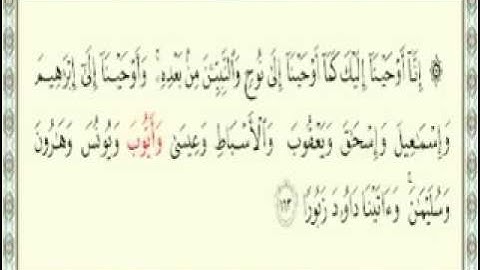 ۞ إِنَّآ أَوْحَيْنَآ إِلَيْكَ كَمَآ أَوْحَيْنَآ إِلَىٰ نُوحٍ وَٱلنَّبِيِّـۧنَ مِنۢ بَعْدِهِۦ ۚ وَأَوْحَيْنَآ إِلَىٰٓ إِبْرَٰهِيمَ
وَإِسْمَٰعِيلَ وَإِسْحَٰقَ وَيَعْقُوبَ وَٱلْأَسْبَاطِ وَعِيسَىٰ وَأَيُّوبَ وَيُونُسَ وَهَٰرُونَ
وَسُلَيْمَٰنَ ۚ وَءَاتَيْنَا دَاوُۥدَ زَبُورًا ١٦٣